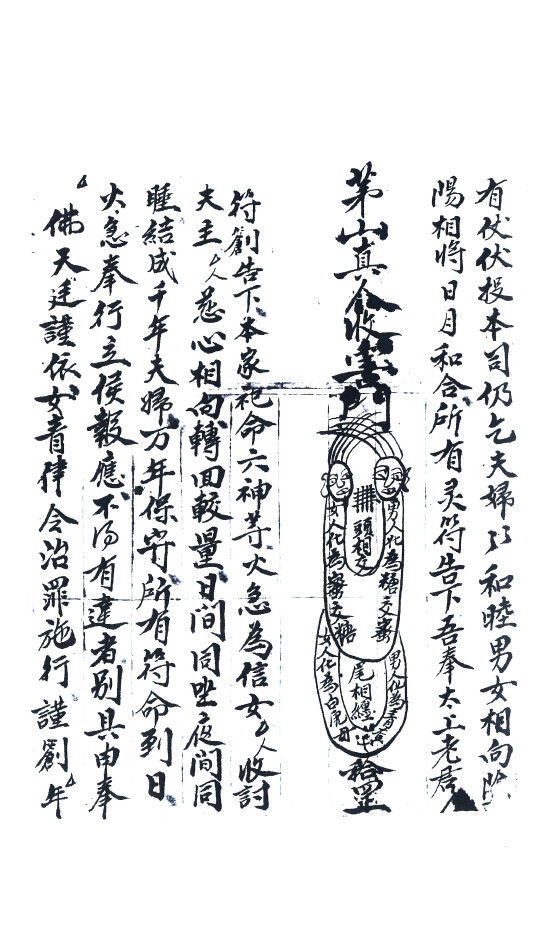 有仗伏投本司仍乞夫婦以和睦男女相向陰
陽相將日月和合所有灵符告下吾奉太上老君
茅山真人收
男人化為糖交蜜
女人化為蜜交糖
頭相交
男人化為青
女人化為白
尾相纏
符劄告下本家祀命六神等火急為信女厶人收討
夫主厶人慈心相向轉回較量日間同坐夜間同
睡結成千年夫婦万年保守所有符命到日
火急奉行立侯報應不得有違者別具由奉
佛天廷謹依女青律令治罪施行謹劄厶年